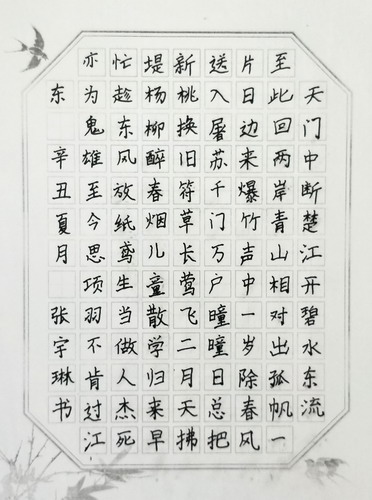 天门中断楚江开碧水东流
至此回两岸青山相对出孤帆一
片日边来爆竹声中一岁除春风
送入屠苏千门万户曈曈日总把
新桃换旧符草长莺飞二月天拂
堤杨柳醉春烟儿童散学归来早
忙趁东风放纸鸢生当做人杰死
亦为鬼雄至今思项羽不肯过江
东 辛丑夏月 张宇琳书